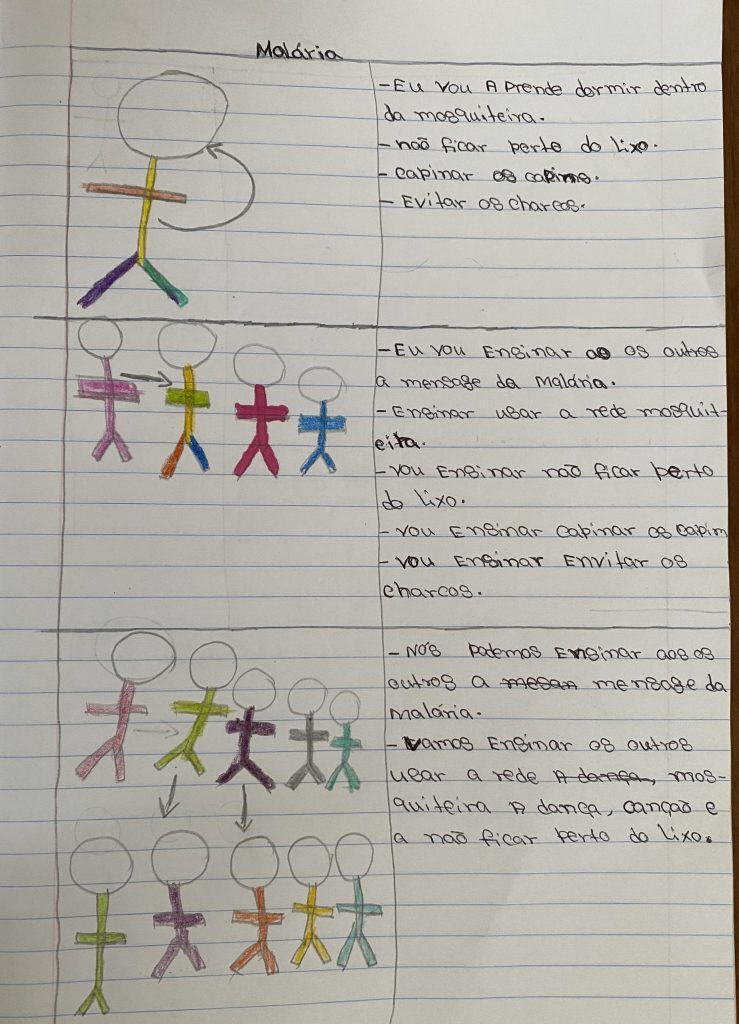 Malária
- Eu vou Aprende dormir dentro
da mosquiteira.
- não ficar perto do lixo.
- capinar os capims.
- Evitar os charcos.
- Eu vou Ensinar ao os outros
a mensage da Malária.
- Ensinar usar a rede mosquit-
eita.
- vou Ensinar não ficar perto
do lixo.
- vou Ensinar capinar os capim
- vou Ensinar Envitar os
charcos.
- Nós Podemos Ensinar aos os
outros a mesan mensage da
Malária.
- Vamos Ensinar os outros
usar a rede A dança, mos-
quiteira A dança, canção e
a não ficar perto do lixo.